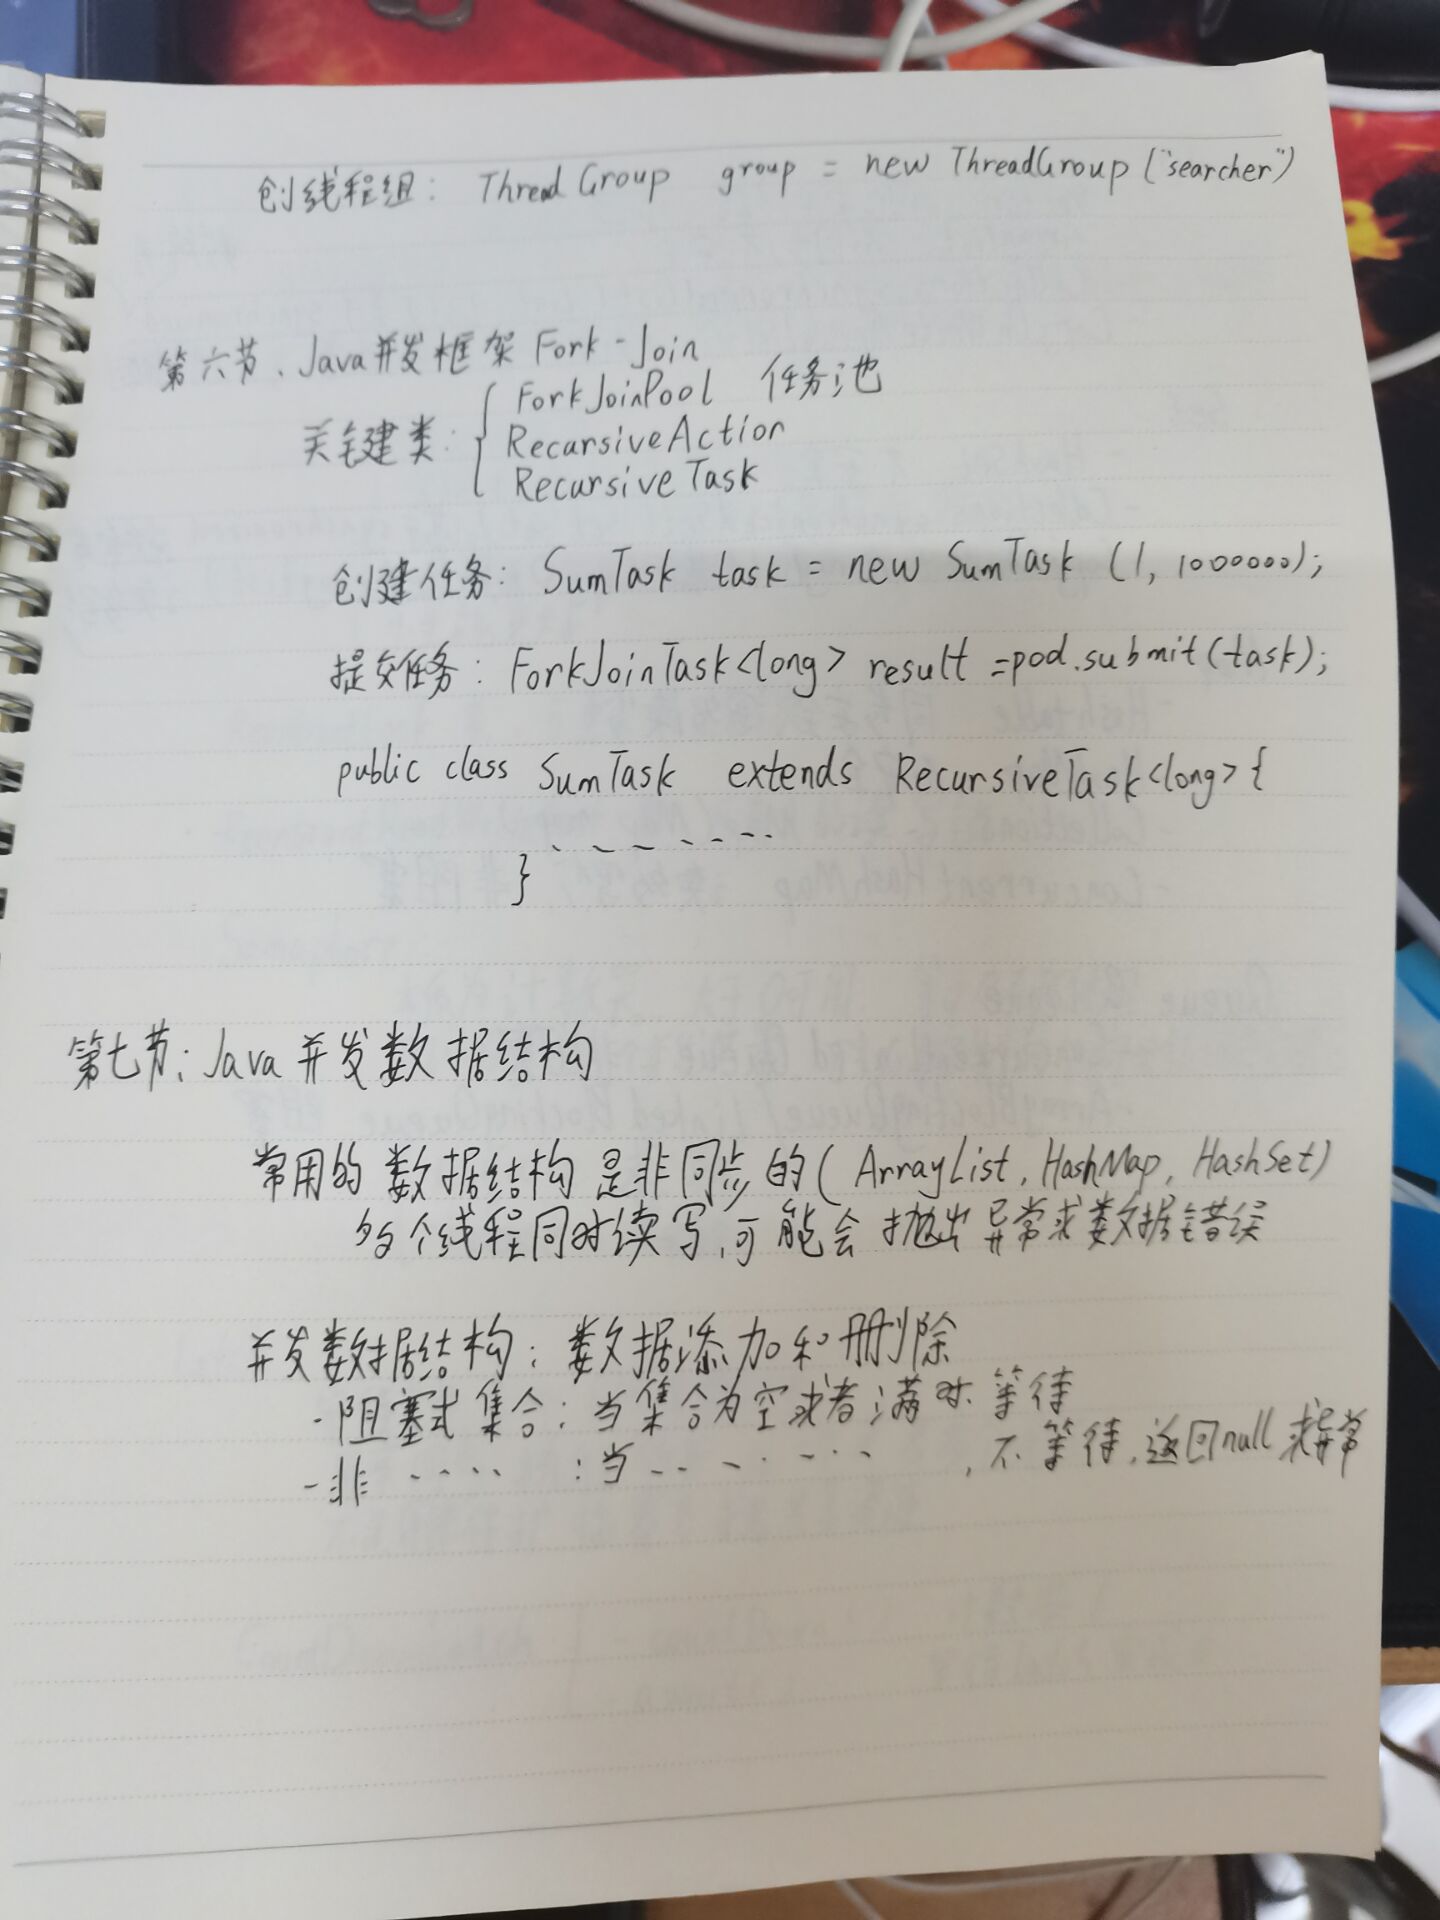 创线程组: ThreadGroup group = new ThreadGroup ("searcher")
第六节、Java并发框架 Fork-Join
ForkJoinPool 任务池
关键建类: RecursiveAction
RecursiveTask
创建任务: SumTask task = new SumTask (1, 1000000);
提交任务: ForkJoinTask<long> result =pool.submit(task);
public class SumTask extends RecursiveTask<long>{
.......
}
第七节: Java 并发数据结构
常用的数据结构是非同步的(ArrayList, HashMap, HashSet)
多个线程同时读写,可能会抛出异常或数据错误
并发数据结构: 数据添加和删除
- 阻塞式集合: 当集合为空或者满时.等待
- 非 .... :当 ...... , 不等待,返回null或异常